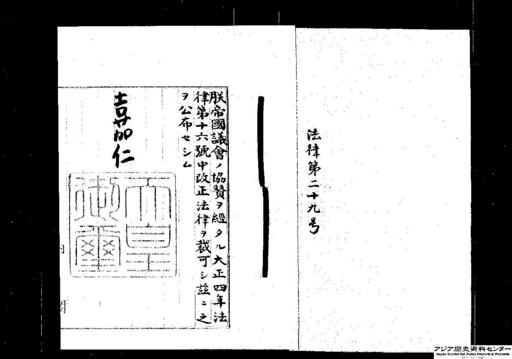 法律第二十九号
朕帝國議會ノ協賛ヲ經タル大正四年法
律第十六號中改正法律ヲ裁可シ茲ニ之
ヲ公布セシム
嘉仁
天皇
御璽
アジア歴史資料センター
Japan Center for Asian Historical Records